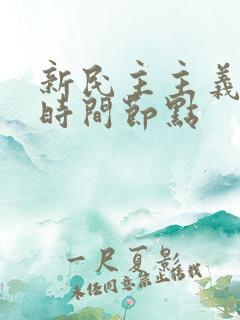 新民主主義
時間節點
一尺夏影
未經同意禁止搭我